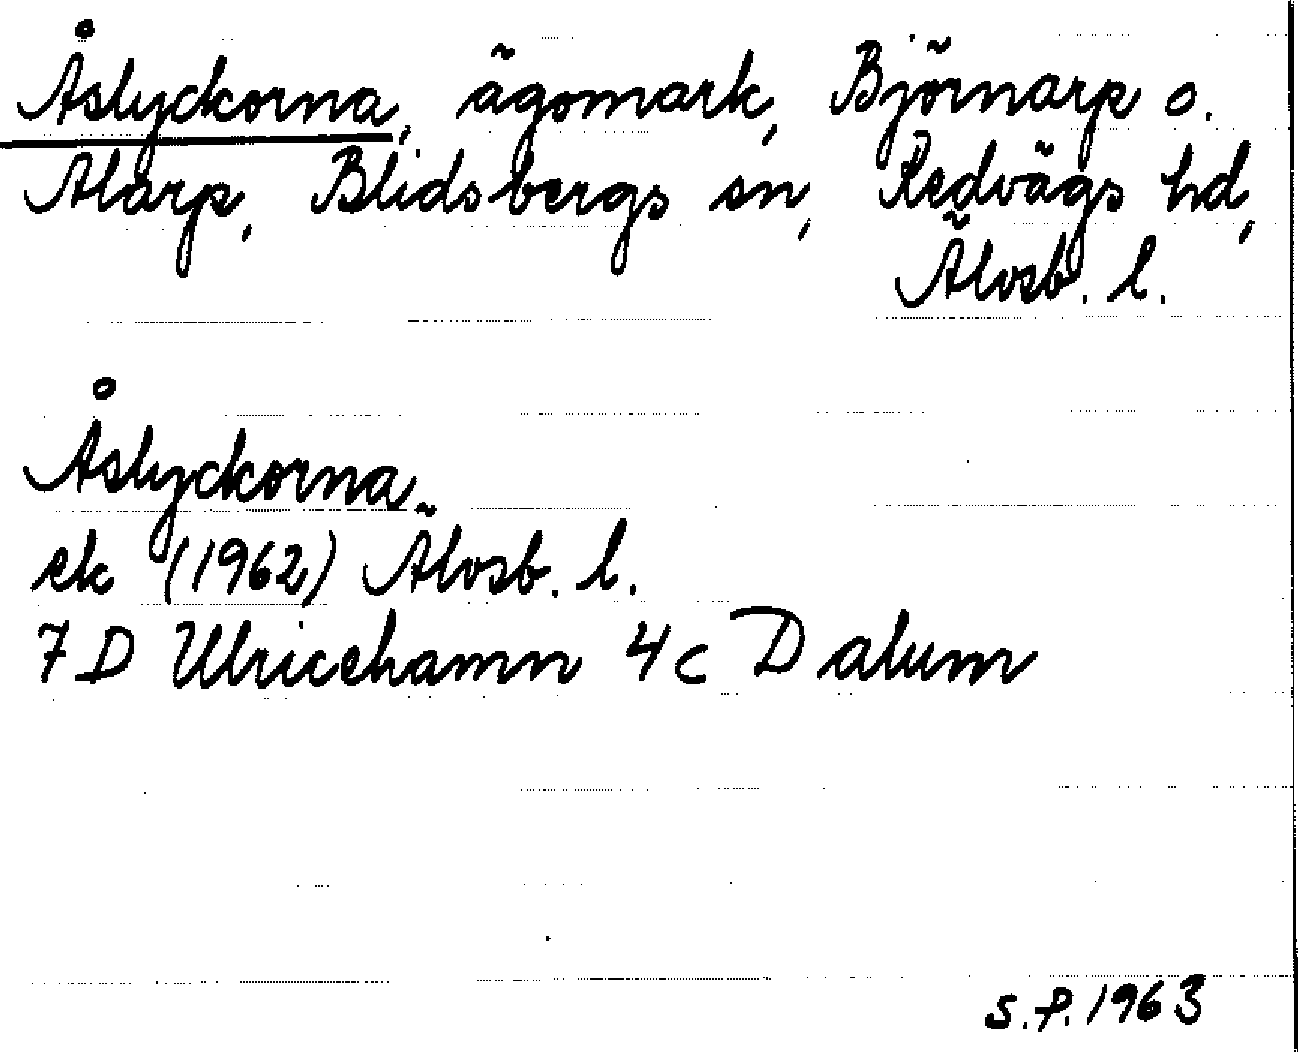 Åslyckorna, ägomark, Björnarp o.
Alarp, Blidsbergs sn, Redvägs hd,
Älvsb. l.
Åslyckorna
ek (1962) Älvsb. l.
7D Ulricehamn 4c Dalum
S.P. 1963